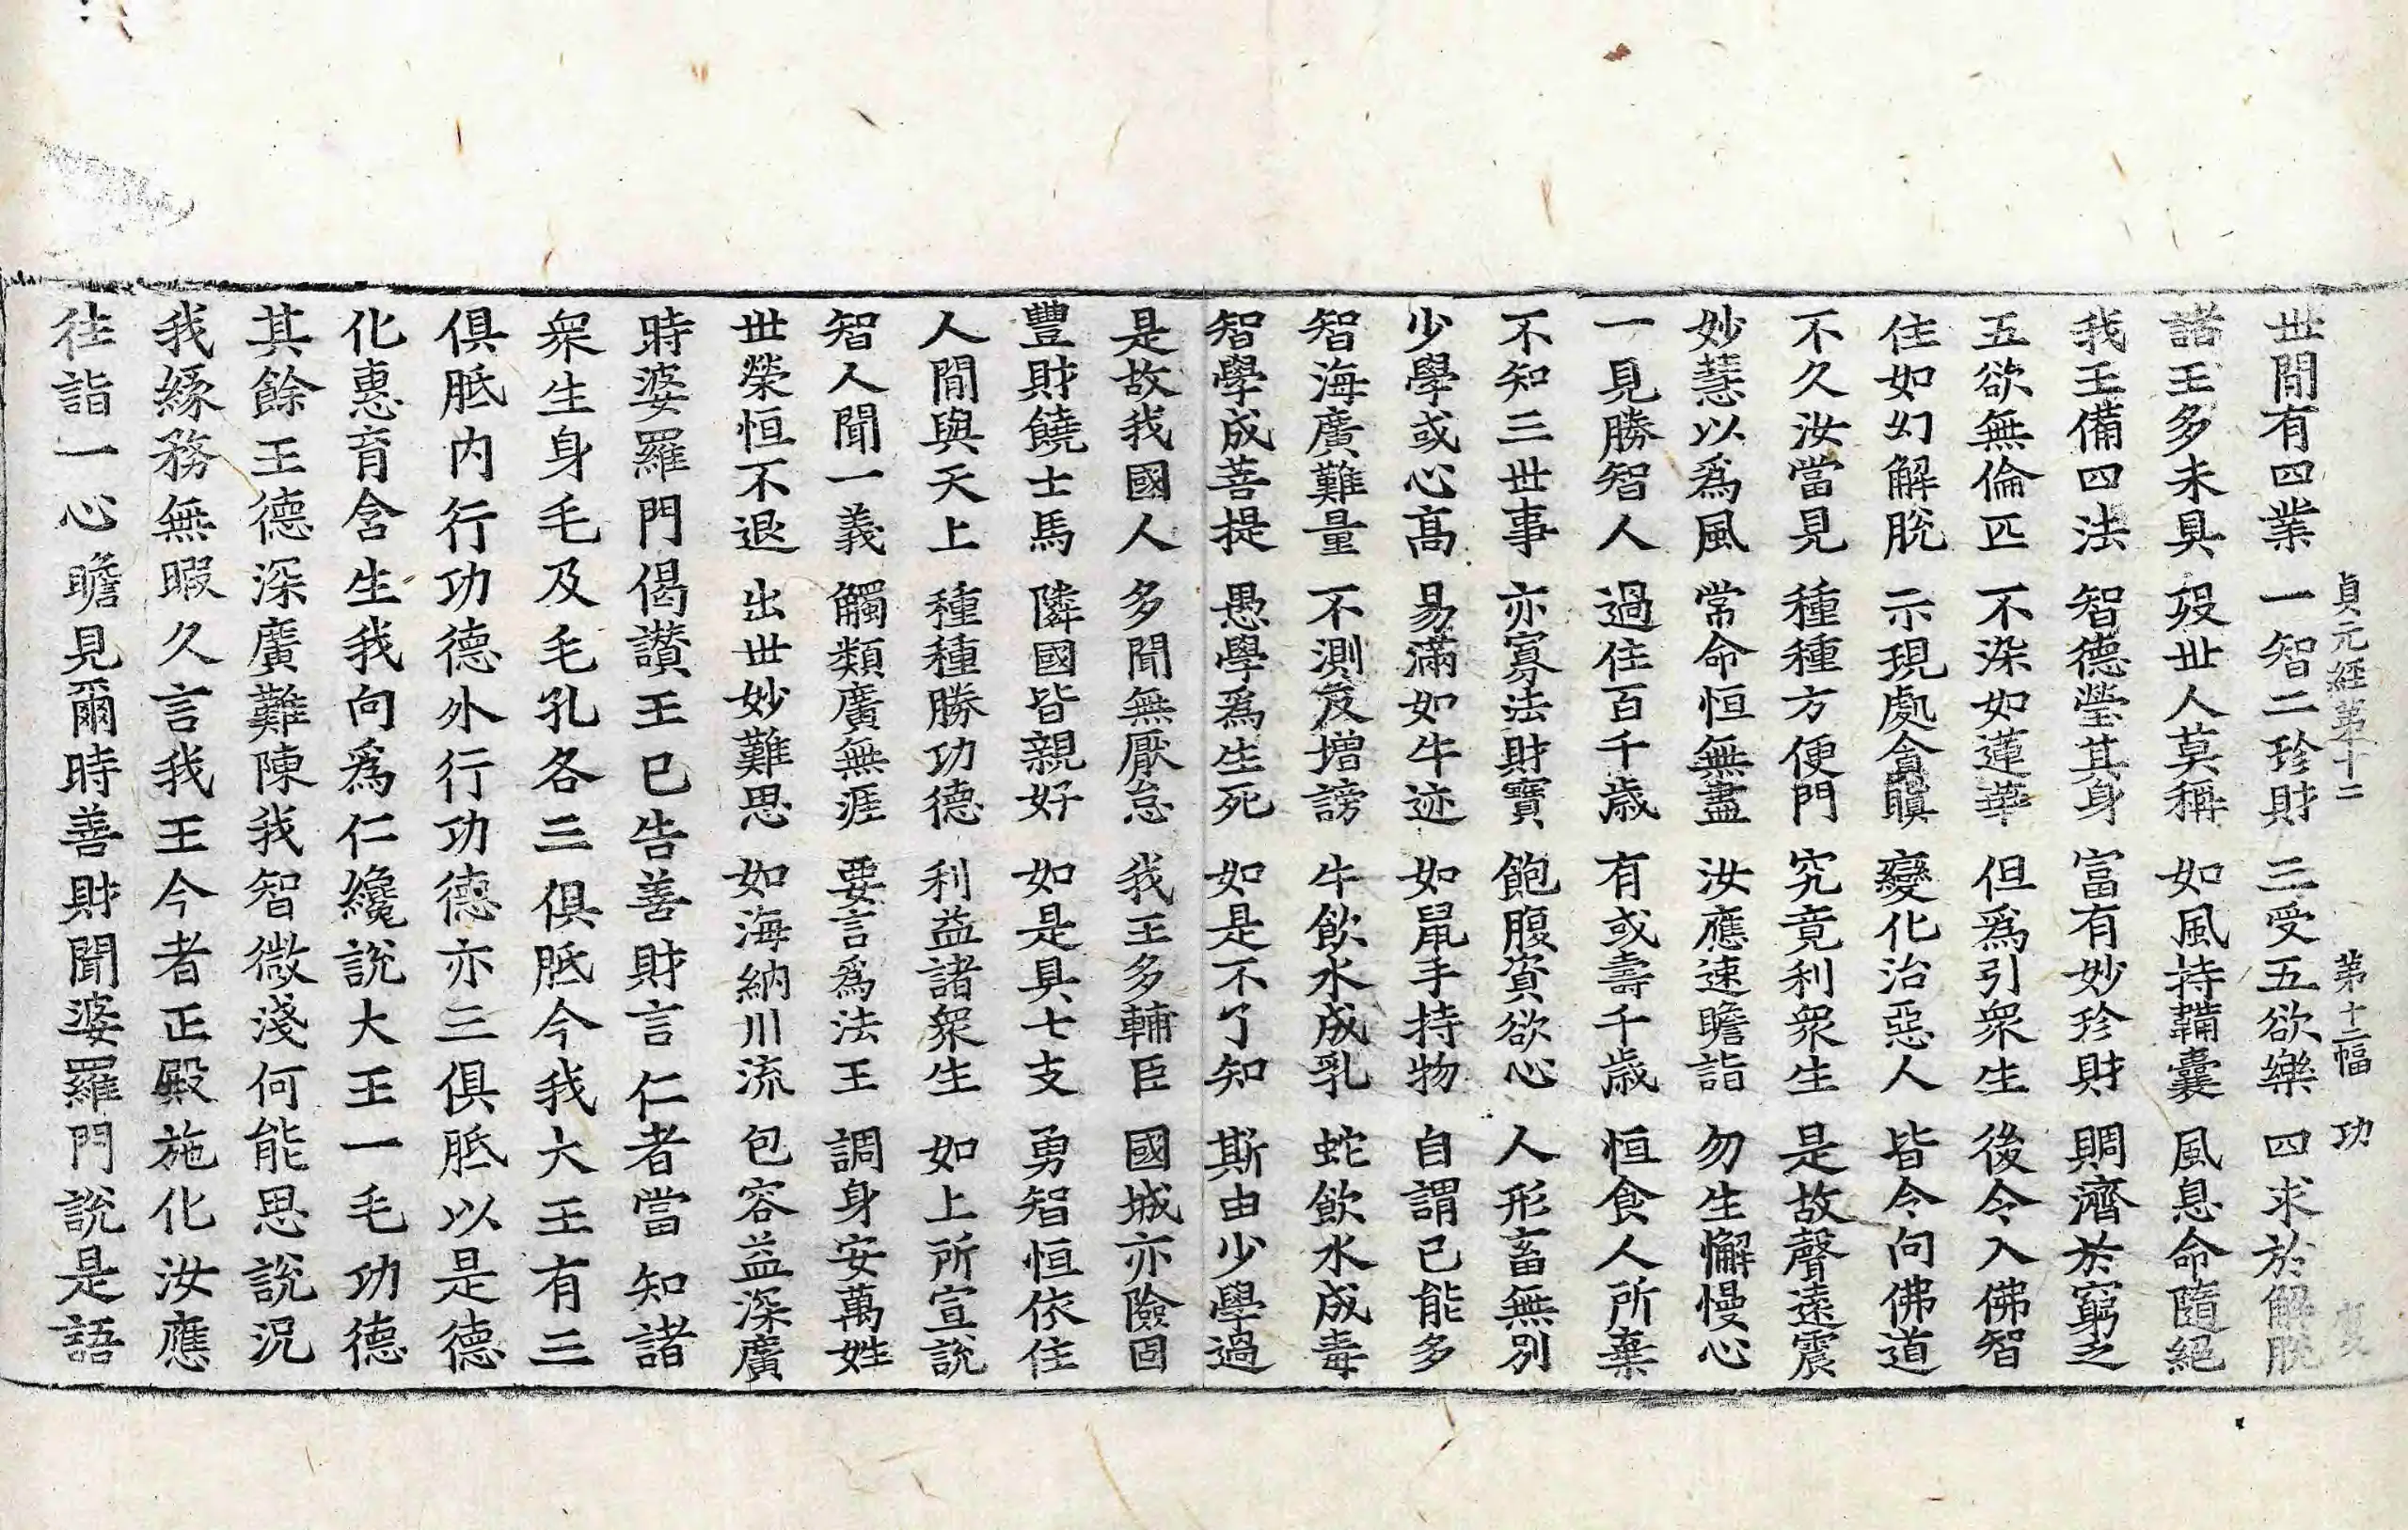 貞元經第十二 第十二幅 功
世間有四業 一智二珍財 三受五欲樂 四求於解脫
諸王多未具 歿世人莫稱 如風持鞴囊 風息命隨絕
我王備四法 智德瑩其身 富有妙珍財 賙濟於窮乏
五欲無倫匹 不染如蓮華 但爲引衆生 後令入佛智
住如幻解脫 示現處貪瞋 變化治惡人 皆令向佛道
不久汝當見 種種方便門 究竟利衆生 是故聲遠震
妙慧以爲風 常命恒無盡 汝應速瞻詣 勿生懈慢心
一見勝智人 過住百千歲 有或壽千歲 恒食人所棄
不知三世事 亦寡法財寶 飽腹資欲心 人形畜無別
少學或心高 易滿如牛迹 如鼠手持物 自謂已能多
智海廣難量 不測反增謗 牛飲水成乳 蛇飲水成毒
智學成菩提 愚學爲生死 如是不了知 斯由少學過
是故我國人 多聞無厭怠 我王多輔臣 國城亦險固
豐財饒士馬 隣國皆親好 如是具七支 勇智恒依住
人間與天上 種種勝功德 利益諸衆生 如上所宣說
智人聞一義 觸類廣無涯 要言爲法王 調身安萬姓
世榮恒不退 出世妙難思 如海納川流 包容益深廣
時婆羅門偈讃王已告善財言仁者當知諸
衆生身毛及毛孔各三俱胝今我大王有三
俱胝内行功德外行功德亦三俱胝以是德
化惠育含生我向爲仁纔說大王一毛功德
其餘王德深廣難陳我智微淺何能思說況
我緣務無暇久言我王今者正殿施化汝應
往詣一心瞻見爾時善財聞婆羅門說是語